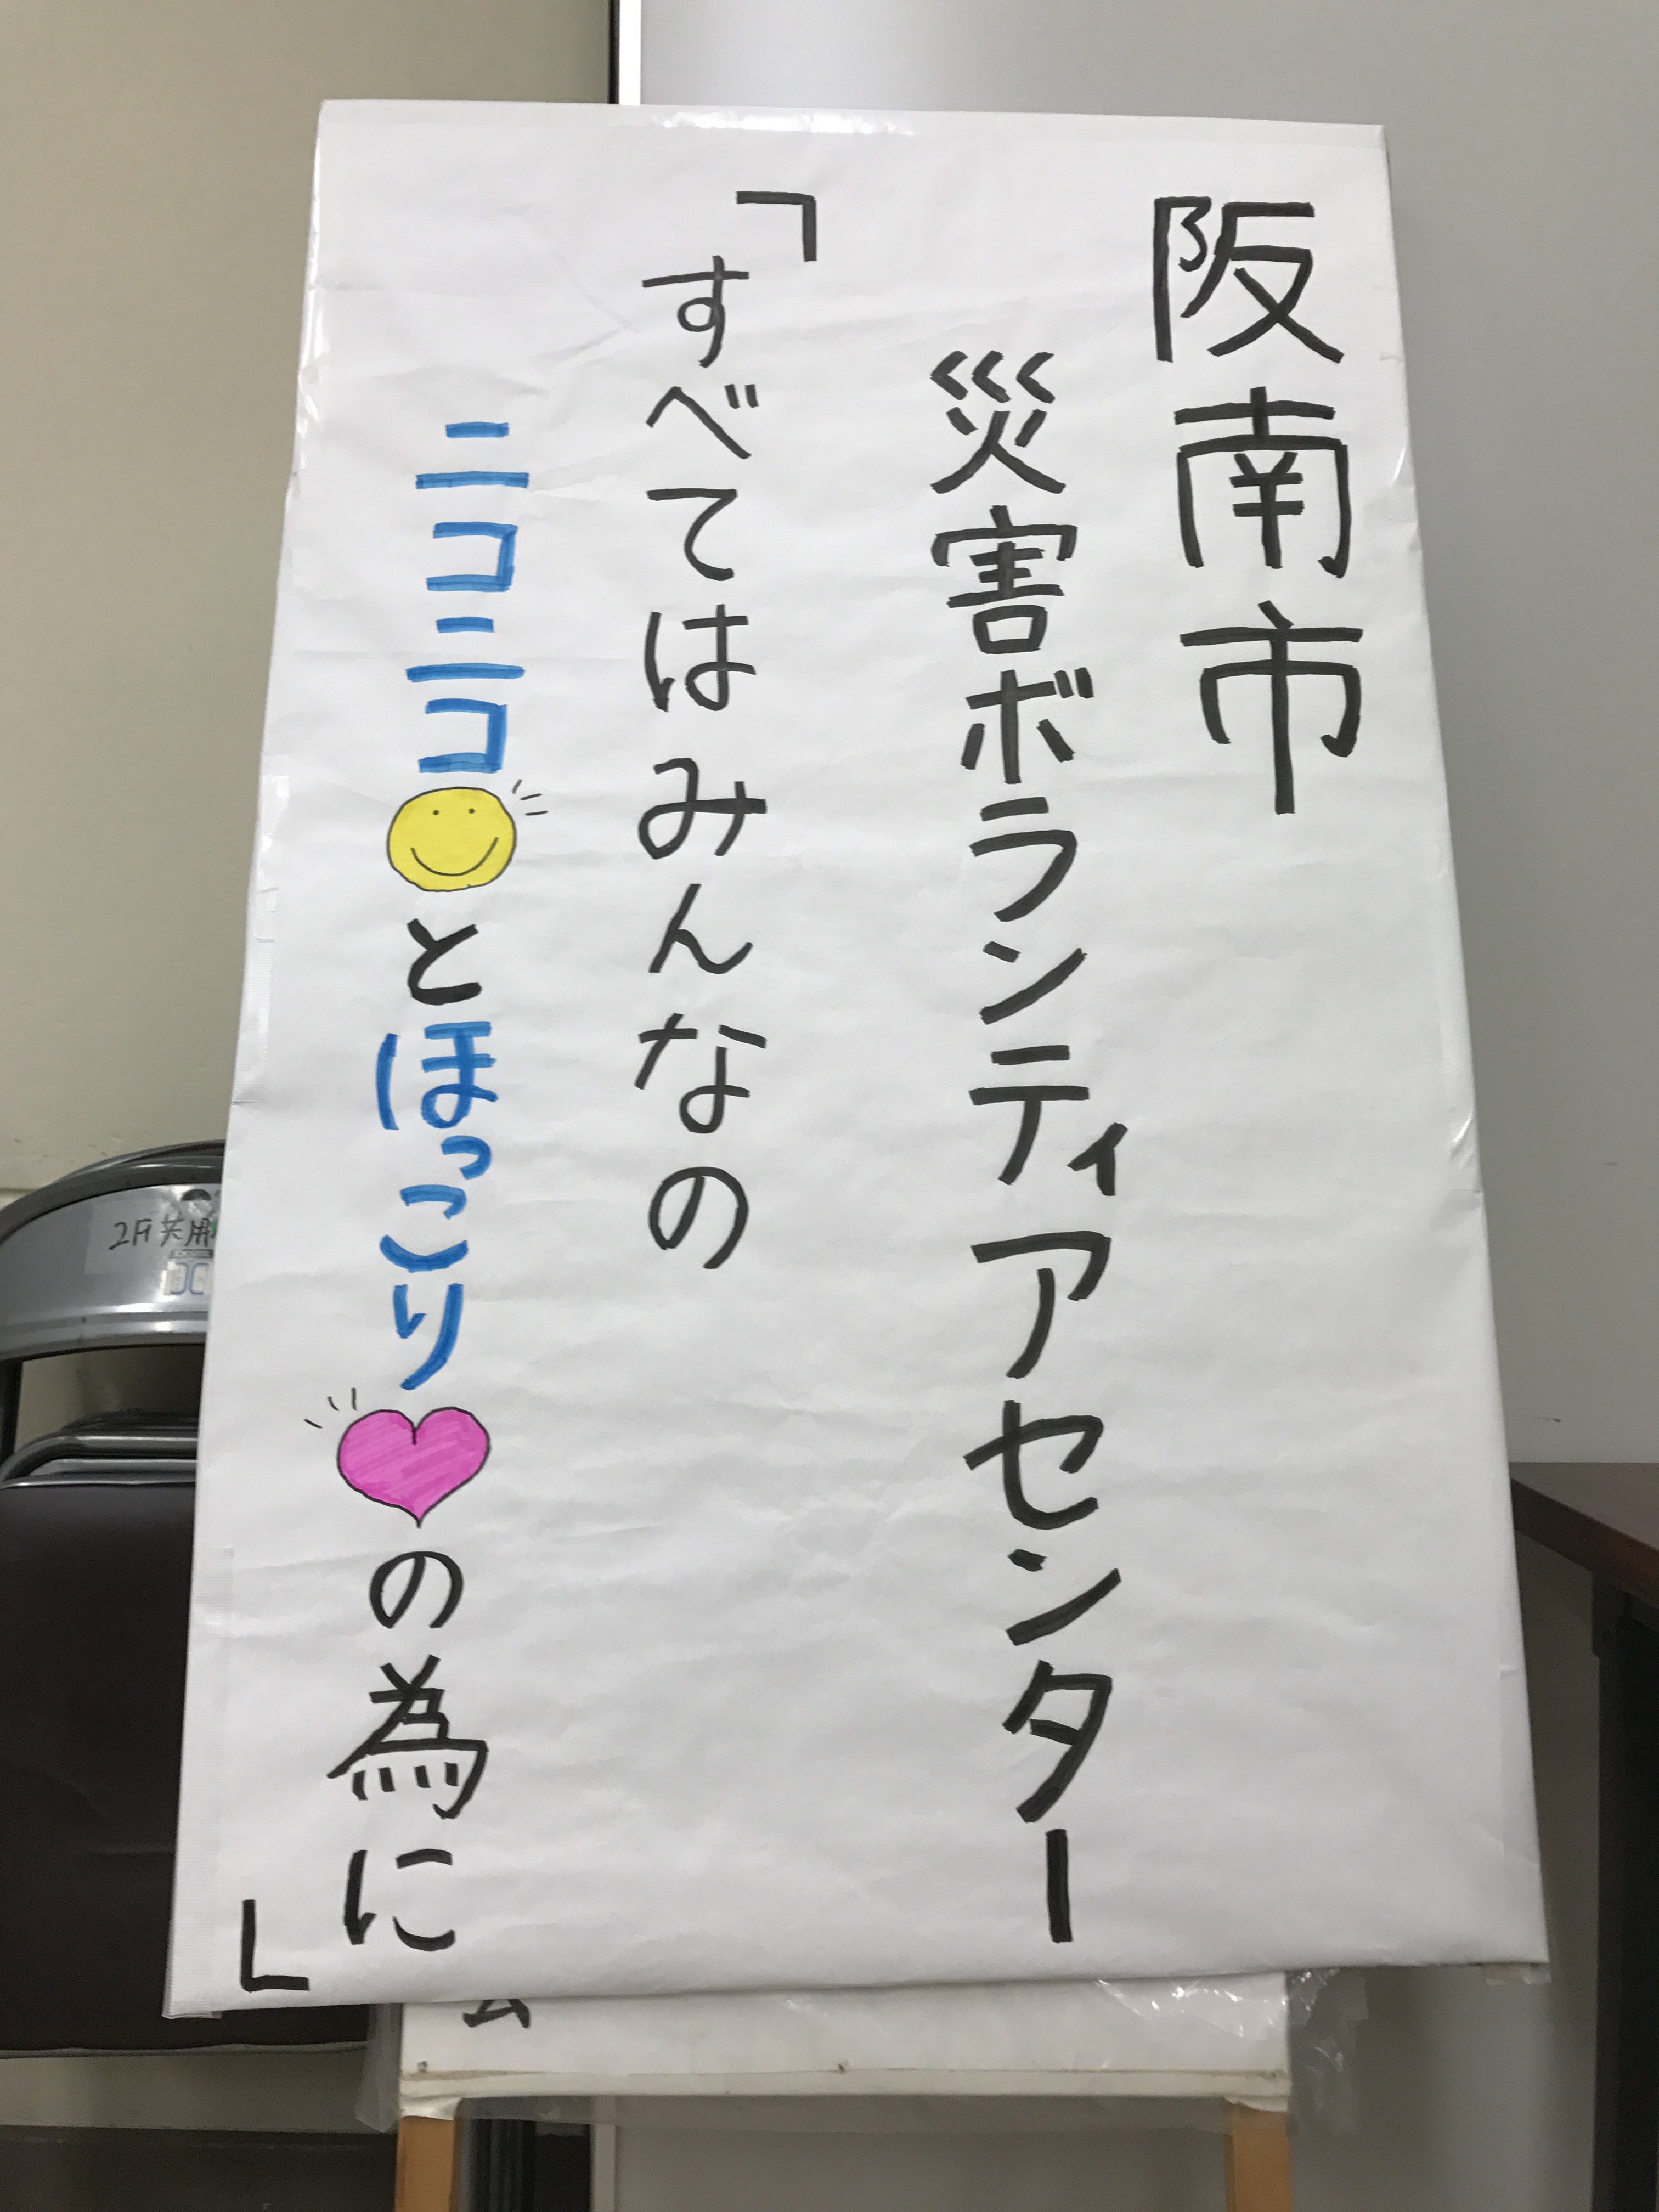 阪南市
災害ボランティアセンター
「すべてはみんなの
ニコニコとほっこりの為に」
2F共用